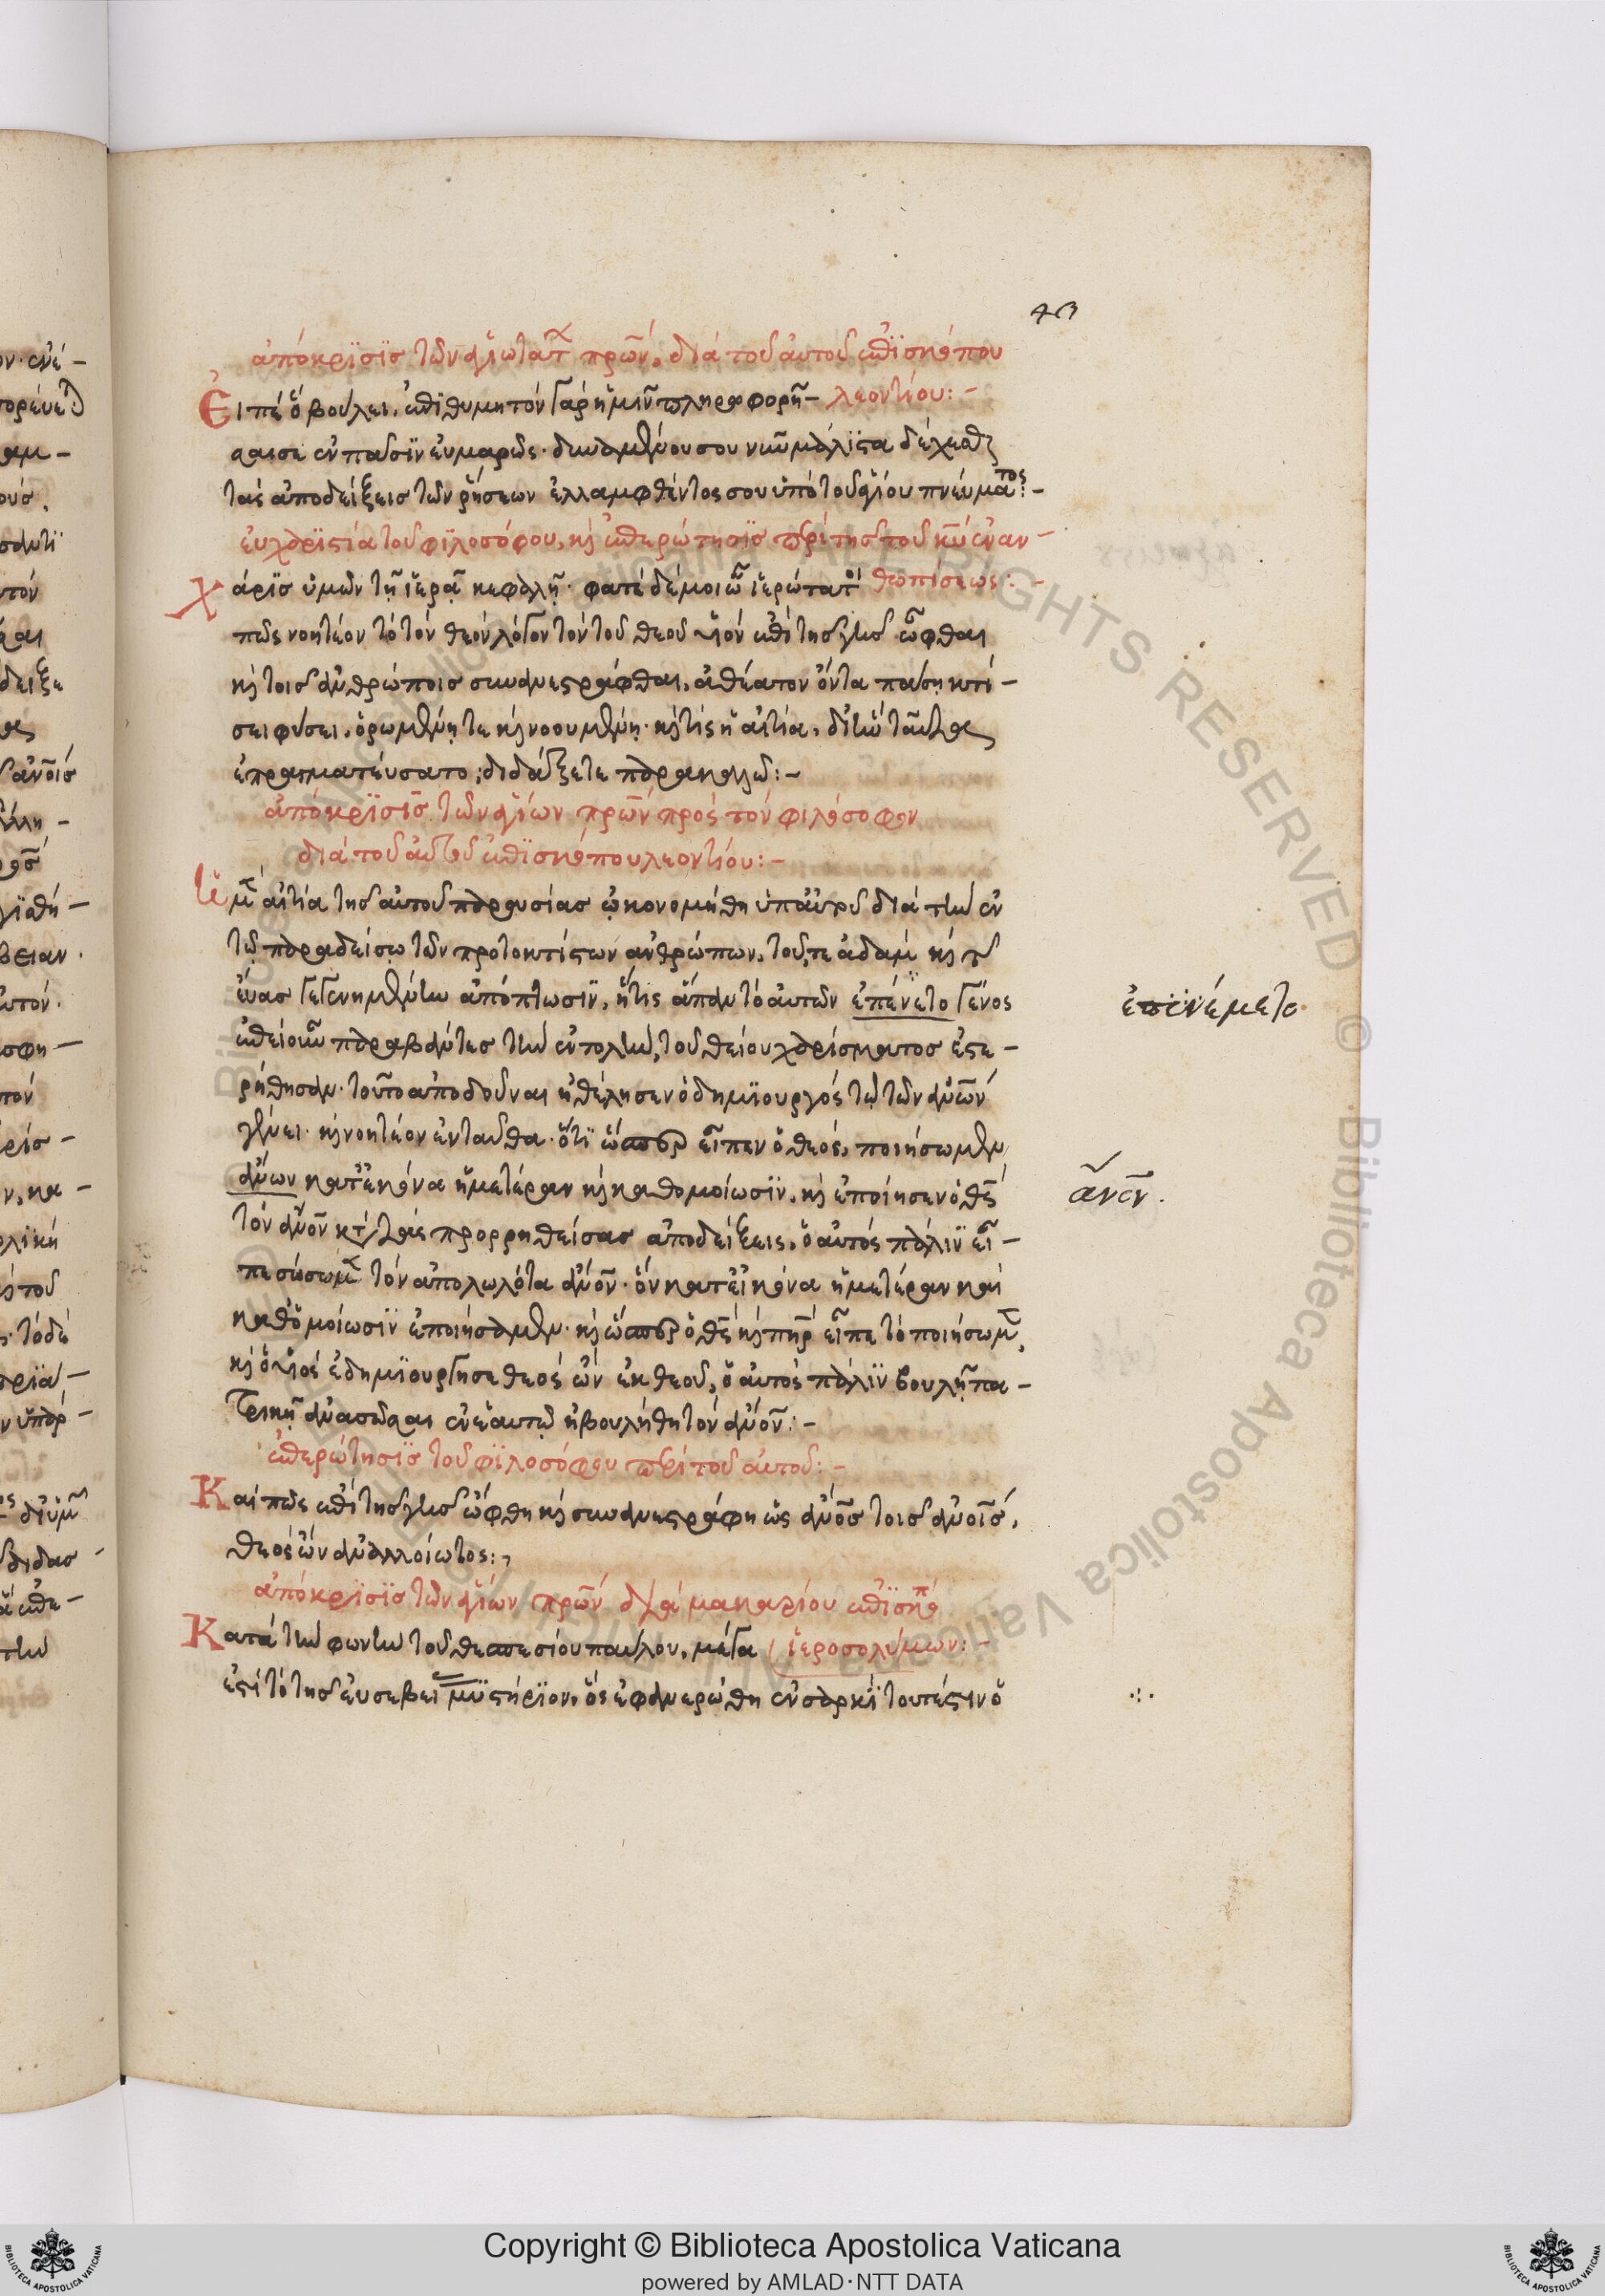 43
ἀπόκρϊσϊς τῶν ἁγϊωτάτ πρων, διὰ τοῦ αὐτοῦ ἐπϊσκόπου
Εἰπὲ ὃ βούλει, ἐπϊθυμητὸν γὰρ ἡμῖν πληροφορῆ-
λεοντίου:-
σαι σε ἐν πᾶσϊν εὐμαρῶς. δυναμένου σου νῦν μάλϊστα δέχεσθαι
τὰς ἀποδείξεις τῶν ῥήσεων ἐλλαμφθέντος σου ὑπὸ τοῦ ἁγίου πνεύματος:-
εὐχαρϊστία τοῦ φϊλοσόφου, καὶ ἐπερώτησϊς περὶ τῆς τοῦ κυ ἐναν-
θρωπίσεως:-
Χάρϊς ὑμῶν τῇ ἱερᾷ κεφαλῇ. φατὲ δέ μοι ὦ ἱερώτατοι
πῶς νοητέον τὸ τὸν θεὸν λόγον τὸν τοῦ θεοῦ υἱὸν ἐπὶ τῆς γῆς ὦφθαι
καὶ τοῖς ἀνθρώποις συναναστράφθαι, ἀθέατον ὄντα πάσῃ κτί-
σει φύσει, ὁρωμένῃ τε καὶ νοουμένῃ. καὶ τίς ἡ αἰτία, δι' ἣν ταῦτα
ἐπραγματεύσατο; διδάξετε παρακαλῶ:-
ἀπόκρϊσις τῶν ἁγίων πρων πρὸς τὸν φιλόσοφον
διὰ τοῦ αὐτοῦ ἐπϊσκόπου λεοντίου:-
Ἡ μ αἰτία τῆς αὐτοῦ παρουσίας ᾠκονομήθη ὑπ' αὐτοῦ διὰ τὴν ἐν
τῷ παραδείσῳ τῶν προτοκτίστων ἀνθρώπων, τοῦ τε ἀδὰμ καὶ τῆς
εὔας γεγενημένην ἀπόπτωσϊν, ἥτις ἅπαν τὸ αὐτῶν ἐπένϊετο γένος
ἐπϊενέμετο.
ἐπεὶ οὖν παραβάντες τὴν ἐντολὴν, τοῦ θείου χαρίσματος ἐστε-
ρήθησαν. τοῦτο ἀποδοῦναι ἠθέλησεν ὁ δημϊουργὸς τῷ τῶν ανων
γένει. καὶ νοητέον ἐνταῦθα. ὅτϊ ὥσπερ εἶπεν ὁ θεός, ποιήσωμεν
ανων κατ' εἰκόνα ἡμετέραν καὶ καθομοίωσϊν, καὶ ἐποίησεν ὁ θς
ανεν.
τὸν ανον κτ τὰς προρρηθείσας ἀποδείξεις, ὁ αὐτὸς πάλϊν εἶ-
πε σώσωμ τὸν ἀπολωλότα ανον. ὃν κατ' εἰκόνα ἡμετέραν καὶ
καθ' ὁμοίωσϊν ἐποιήσαμεν. καὶ ὥσπερ ὁ θς καὶ πηρ εἶπε τὸ ποιήσωμ,
καὶ ὁ υἱὸς ἐδημϊούργησε θεὸς ὢν ἐκ θεοῦ, ὁ αὐτὸς πάλϊν βουλῇ πα-
τρικῇ ἀνασῶσαι ἐν ἑαυτῷ ἠβουλήθη τὸν ανον:-
ἐπερώτησϊς τοῦ φϊλοσόφου περὶ τοῦ αὐτοῦ:-
Καὶ πῶς ἐπὶ τῆς γῆς ὤφθη καὶ συνανεστράφη ὡς ανος τοῖς ανοις,
θεὸς ὢν ἀναλλοίωτος:,
ἀπόκρϊσϊς τῶν ἁγίων πρων διὰ μακαρίου ἐπϊσκπό
Κατὰ τὴν φωνὴν τοῦ θεσπεσίου παύλου, μέγα
ἱεροσολύμων:-
ἐστὶ τὸ τῆς εὐσεβεί μϋστήρϊον, ὃς ἐφανερώθη ἐν σαρκὶ τουτέστιν ὁ
RIGHTS RESERVED © Biblioteca Apostolica Vaticana
Copyright © Biblioteca Apostolica Vaticana
powered by AMLAD·NTT DATA